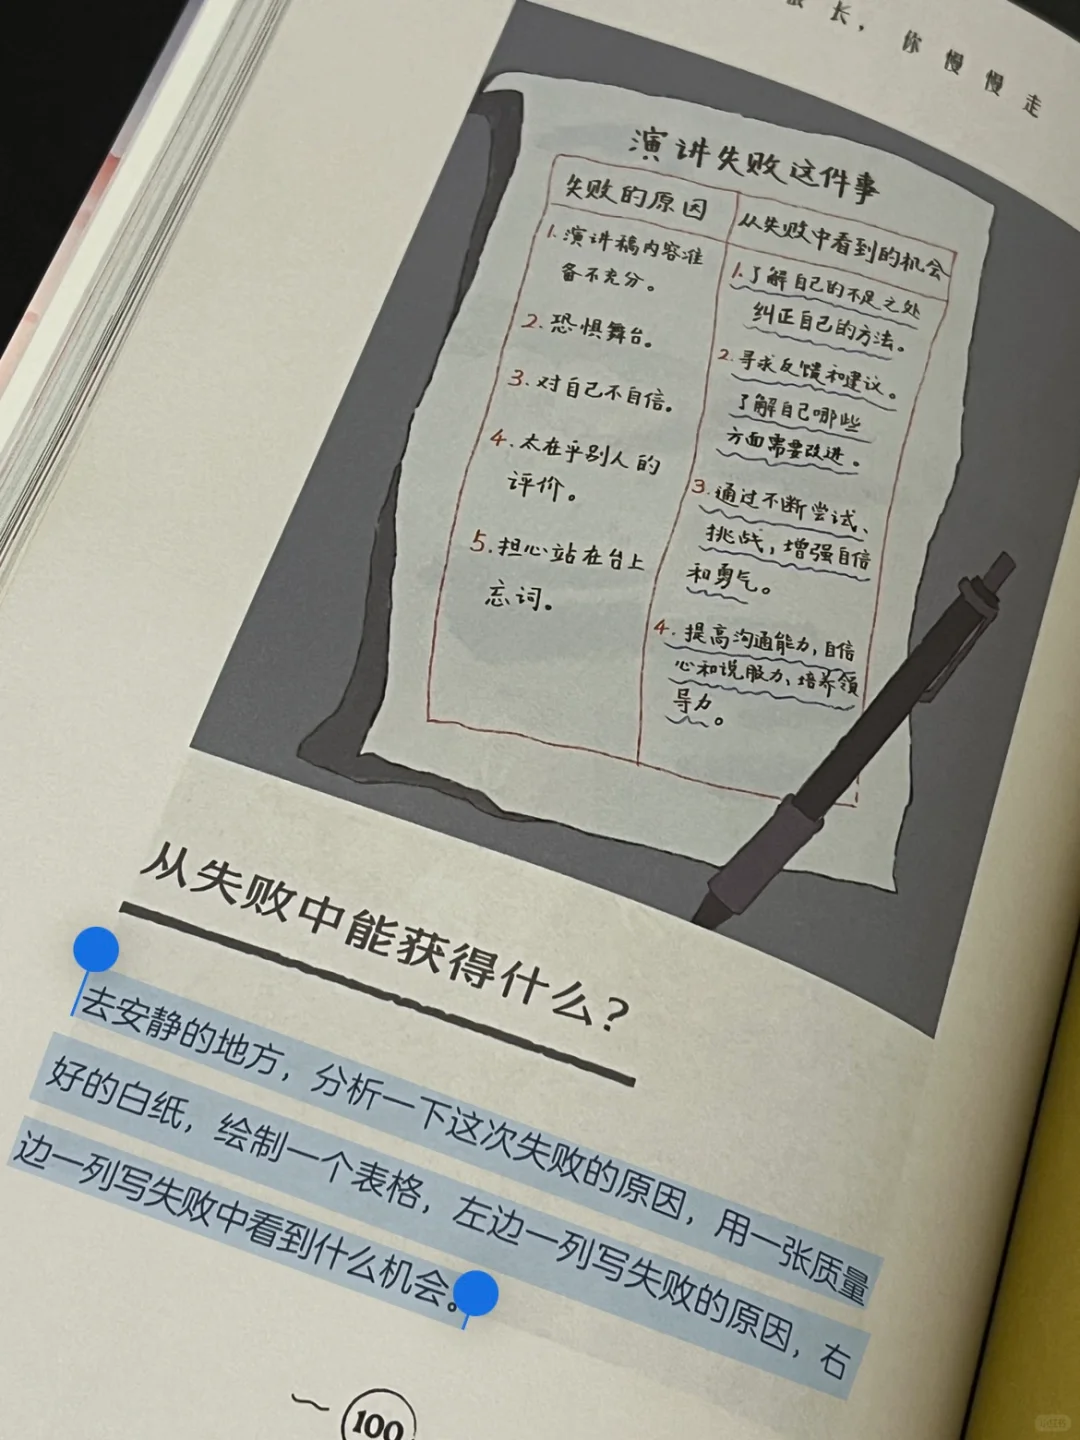 长，你慢慢走
演讲失败这件事
失败的原因
1.演讲稿内容准
备不充分。
2.恐惧舞台。
3.对自己不自信。
4.太在乎别人的
评价。
5.担心站在台上
忘词。
从失败中看到的机会
1.了解自己的不足之处
纠正自己的方法。
2.寻求反馈和建议。
了解自己哪些
方面需要改进。
3.通过不断尝试、
挑战，增强自信
和勇气。
4.提高沟通能力，自信
心和说服力、培养领
导力。
从失败中能获得什么？
去安静的地方，分析一下这次失败的原因，用一张质量
好的白纸，绘制一个表格，左边一列写失败的原因，右
边一列写失败中看到什么机会。
100